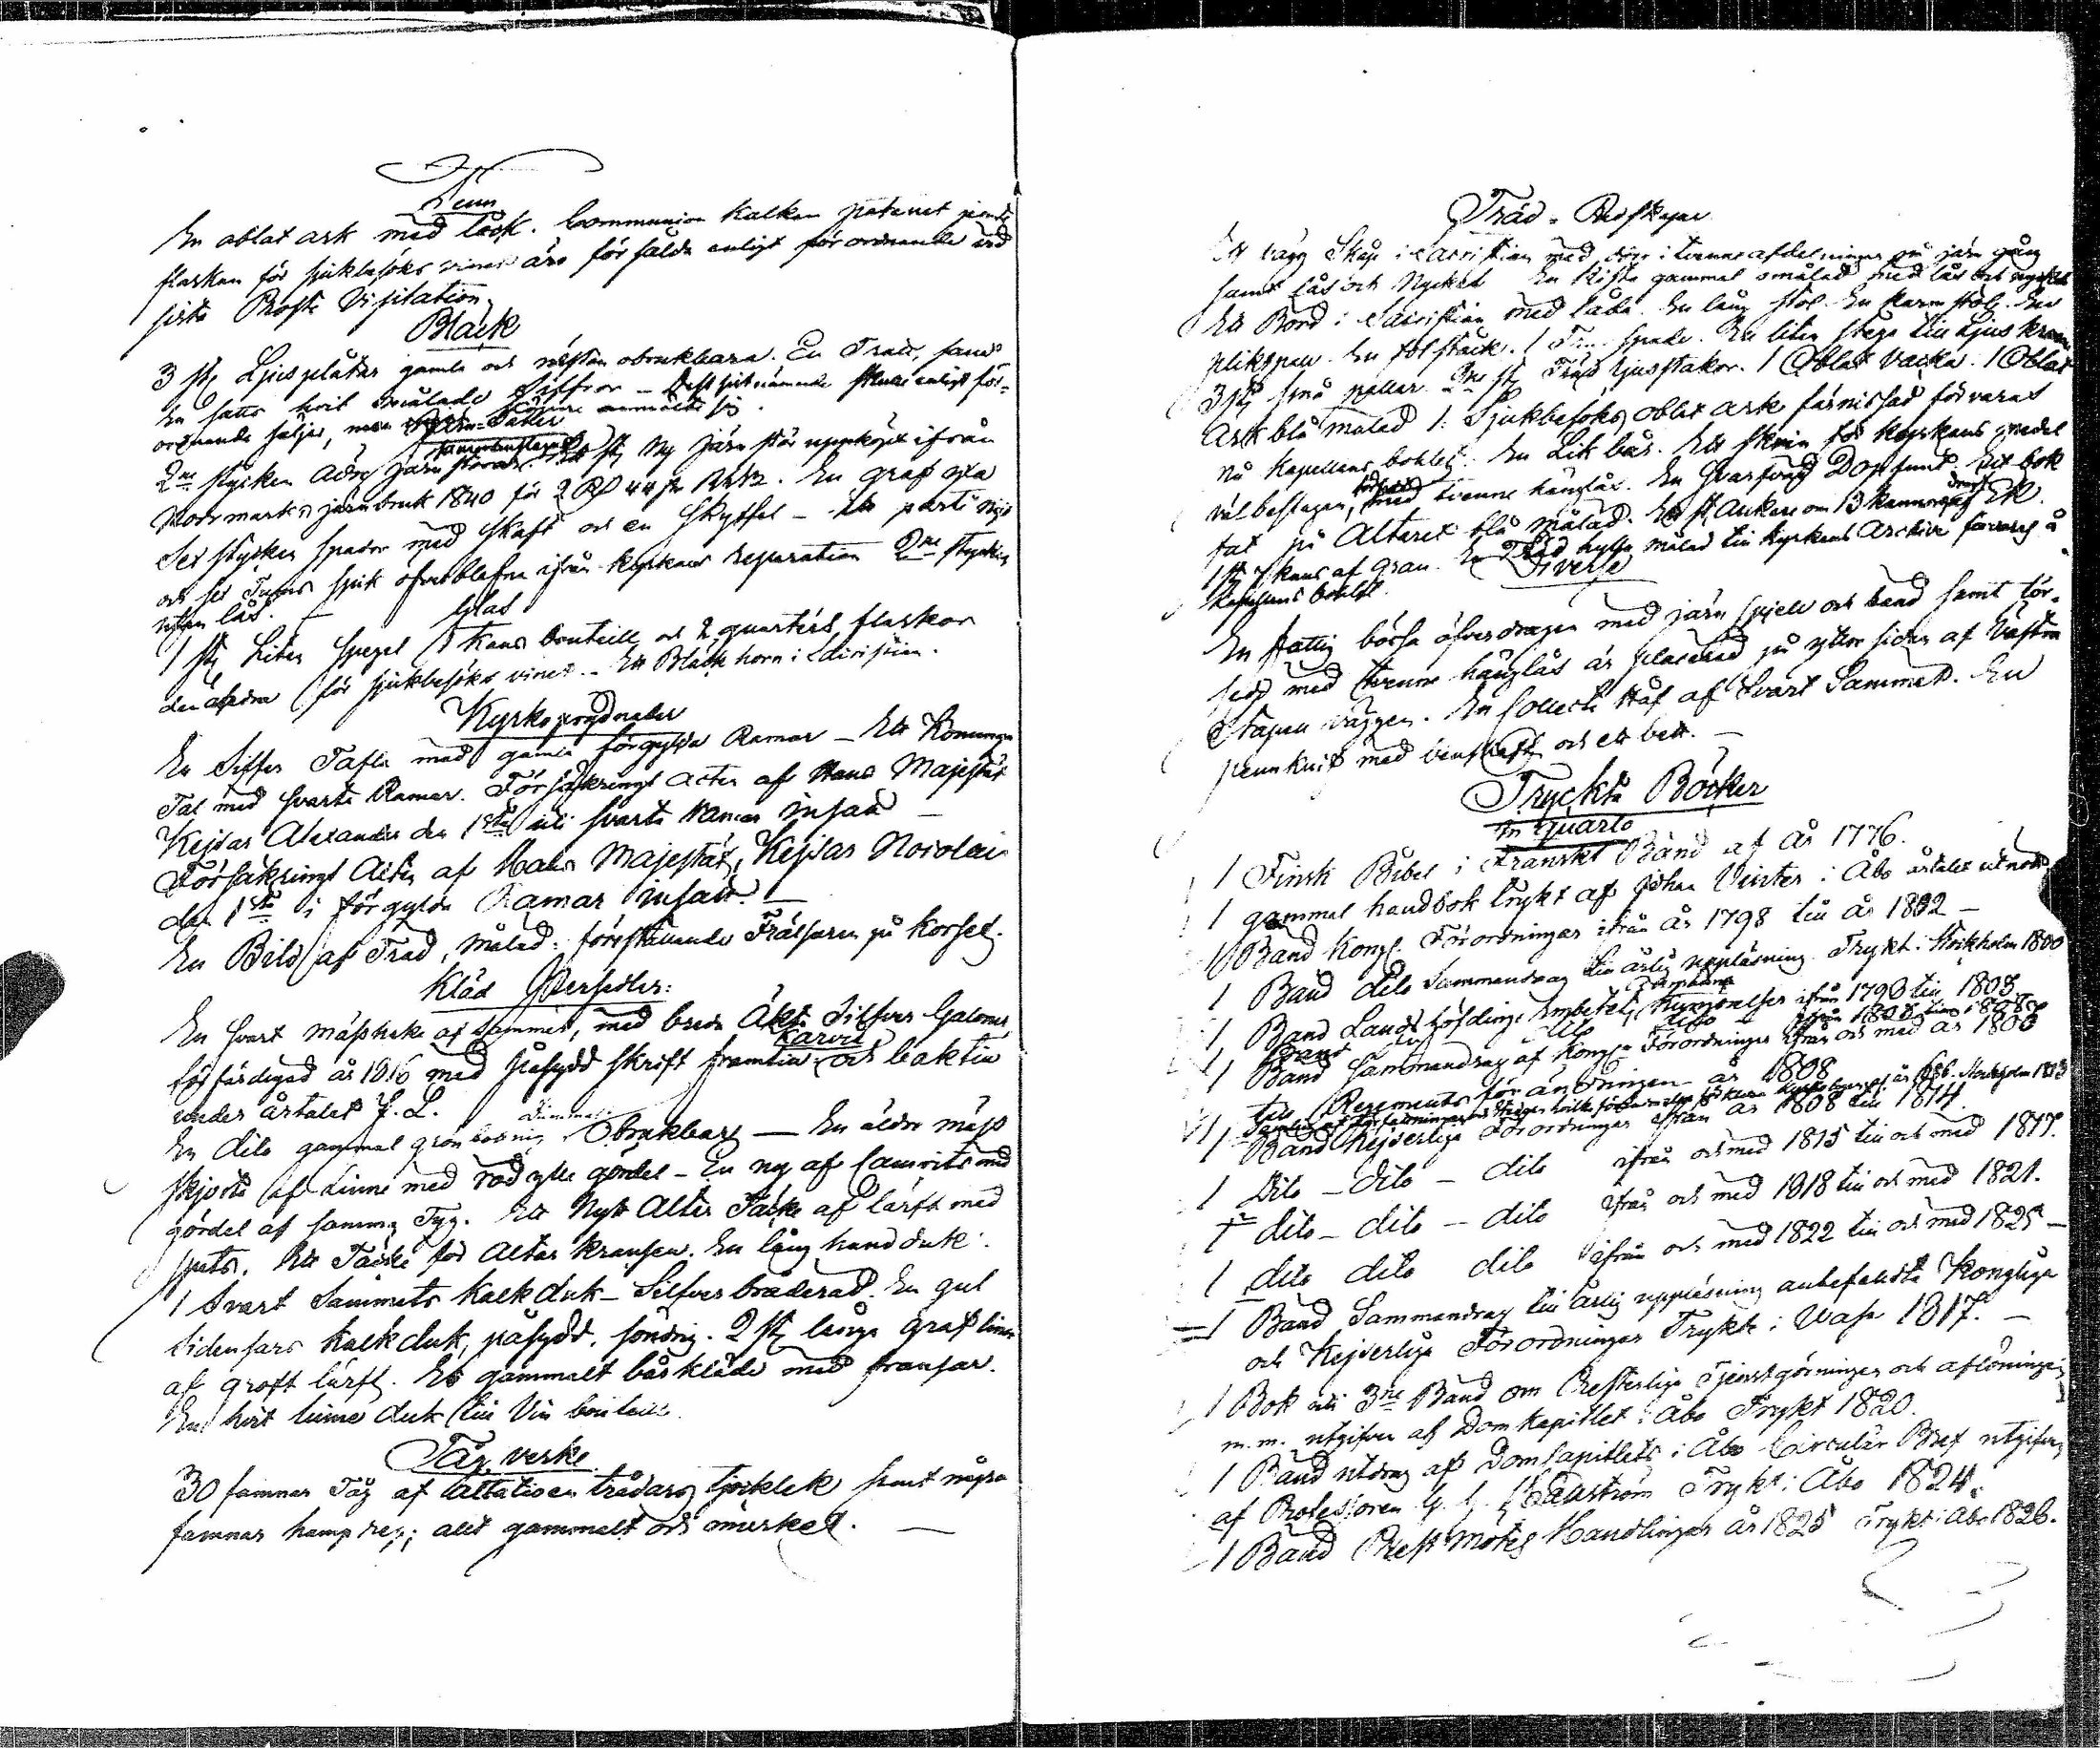 Tenn
En oblat ask med låck. Communion Kalken patenet jemte
flaskan för sjukbesöks vinet äro försålda enligt förordnande vid
sista Prosts Visitation
Bläck
3 st. Ljusplåtar gamla och nästan obrukbara. En Tratt, samt
En satts hvit målade Siffror – Dess sistnämnde skulle enligt för-
ordnande säljas, men anmälte sig.
Järn-Saker
2ne stycken Järn störar. Ett st. Ny Järn stör uppköpt ifrån
Norrmarks järnbruk 1840 för 2 Rs 44 En graf yxa
Sex stycken spador med skaft och en skyffel – Ett parti
och sex Tums spik öfverblefne ifrån kyrkans reparation 2ne stycken
utan lås.
Glas
1 st. Liten spegel 1 Kans bouteille och 2 quarters flaskor
den äldre för sjukbesöks vinet. – Ett Bläck horn i
Kyrkoprydnader
En Siffer Tafla med gamla förgylda Ramar – Ett Konunga
Tal med svarta Ramar. Försäkrings Acten af Hans Majestät
Kejsar Alexander den 1sta uti svarta Ramar insatt –
Försäkrings Acten af Hans Majestät, Kejsar Nicolai
den 1sta i förgylda Ramar insatt. –
En Bild af Träd, målad: föreställande Frälsaren på Korset.
Kläd Persedlar:
En svart mässhake af Sammet, med breda Äkta Silfver Galoner,
förfärdigad år 1816 med påsydd skrift framtill och baktill
under årtalet J. L.
En dito gammal grön Obrukbar – En äldre mäss
skjorta af Linne med röd ylle gördel – En ny af Camrits med
gördel af samma Tyg. Ett Nytt Altar Täcke af lärft med
spets. Ett Täcke för Altar kransen. En lång handduk.
1 Svart Sammets Kalkduk – Silfver broderad. En gul
Sidensars Kalkduk, påsydd, söndrig. 2 st. långa Graf linor
af groft lärft. Ett gammalt bårkläde med fransar.
En hvit linne duk till Vin bouteill.
Tåg verke.
30 famnar Tåg af trådars tjocklek samt några
famnar hamp rep; allt gammalt och murket. –
Träd-Redskapar
Ett vägg Skåp i Sacristian med dörr i tvenne afdelningar på järn gång
samt Lås och Nyckel En Kista gammal omålad med lås och nyckel
Ett Bord i Sacristian med låda. En lång stol. En Karm stol. En
En fotstack. 1 Trä spade. En liten stege till Ljus kronan
3 st. små pallar. 2ne st. Träd ljusstakar. 1 Oblat 1 Oblat
Ask blå målad 1: Sjukbesöks oblat ask färnissad förvaras
på Kapellans bohlet. En Lik bår. Ett skrin för Kyrkans medel
väl beslagen, med tvenne hänglås. En Svarfvad Dopfunt. Ett bok
fat på Altaret blå målad. Ett st. Ankare om 13 Kannor Ek.
1 st. Skans af Gran. En Träd hylla målad till Kyrkans Archive
Kapellans bohlet.
Diverse
En fattig börsa öfverdragen med järn spjele och band samt för-
sedd med tvenne hänglås är placerad på yttre sidan af Västra
Stapel väggen. En Collect Håf af Svart Sammet. En
pennknif med benskaft och ett bett. –
Tryckta Böcker
in quarto
1 Finsk Bibel i Franskt Band af år 1776.
1 gammal handbok tryckt af Johan Vinter i Åbo årtalet utnött
1 Band Kongl. Förordningar ifrån år 1798 till år 1802 –
1 Band dito Sammandrag till årlig uppläsning Tryckt i Stockholm 1800
1 Band Lands höfdinge Embetets Kungörelser ifrån 1790 till 1803
1 Band dito dito ifrån till 1808
1 Band Sammandrag af Kongl. Förordningar ifrån och med år 1800
till Regements förändringen år 1808
1 Band Kejserliga Förordningar ifrån år 1808 till 1814
1 Dito – Dito – dito ifrån och med 1815 till och med 1817.
1 dito – dito – dito ifrån och med 1818 till och med 1821.
1 dito dito dito ifrån och med 1822 till och med 1825 –
1 Band Sammandrag till årlig uppläsning anbefaldte Kongliga
och Kejserliga Förordningar Tryckt i Wasa 1817. –
1 Bok uti 3ne Band om Presterliga Tjenstgörningar och aflöningar
m.m. utgifven af Domkapitlet i Åbo Tryckt 1820.
1 Band utdrag af Domcapitlets i Åbo Circulär Bref utgifven
af Professoren Tryckt i Åbo 1824.
1 Band Prestmötes Handlingar år 1825 Tryckt i Åbo 1826.